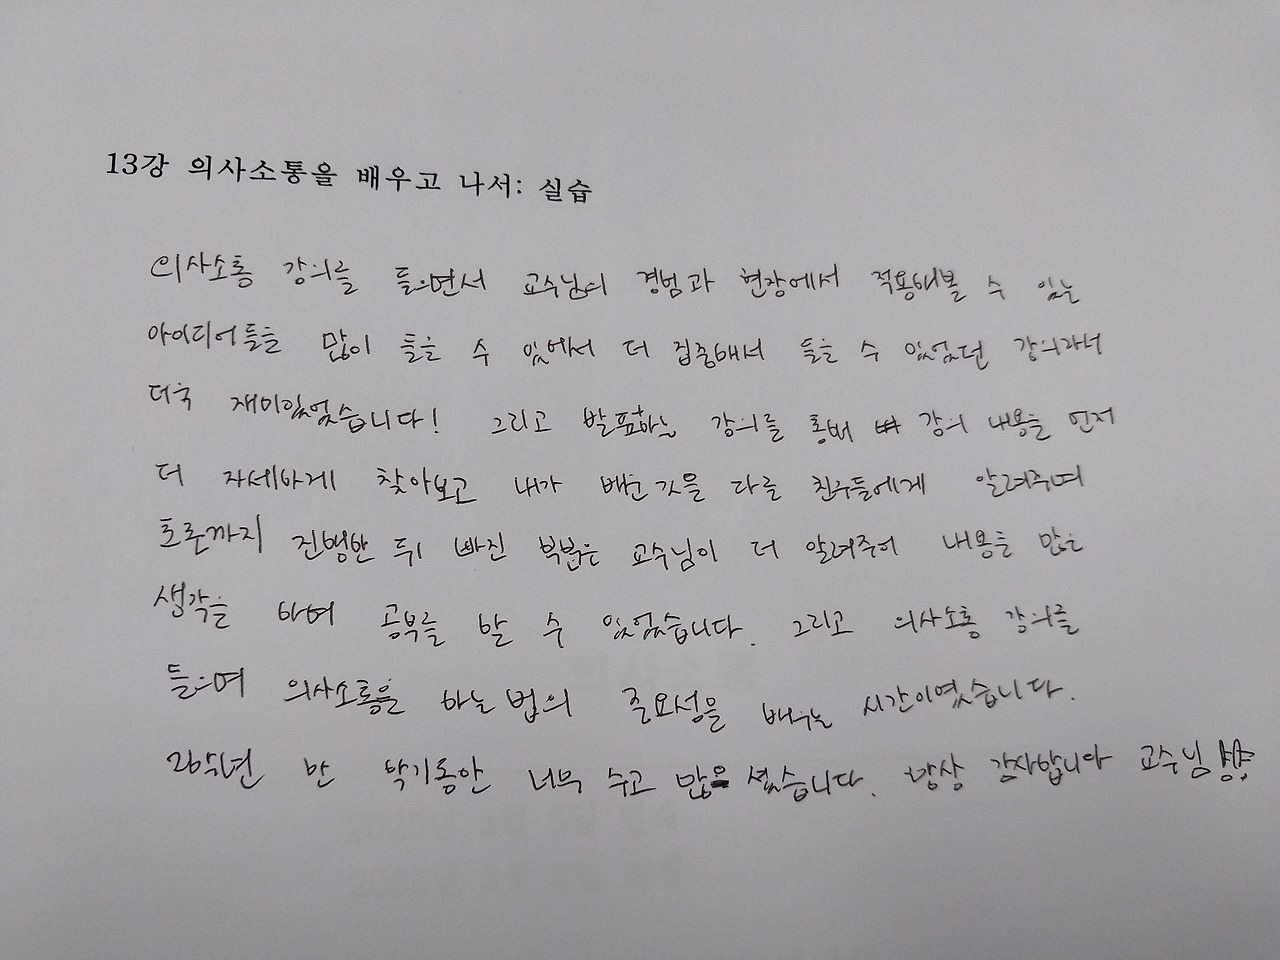 13강 의사소통을 배우고 나서: 실습
의사소통 강의를 들으면서 교수님의 경험과 현장에서 적용해볼 수 있는
아이디어들을 많이 들을 수 있어서 더 집중해서 들을 수 있었던 강의라서
더욱 재미있었습니다! 그리고 발표하는 강의를 통해 강의 내용을 먼저
더 자세하게 찾아보고 내가 배운 것을 다른 친구들에게 알려주며
토론까지 진행한 뒤 빠진 부분은 교수님이 더 알려주어 내용을 많은
생각을 하며 공부를 할 수 있었습니다. 그리고 의사소통 강의를
들으며 의사소통을 하는 법의 중요성을 배우는 시간이였습니다.
26학년 한 학기동안 너무 수고 많으셨습니다. 항상 감사합니다 교수님